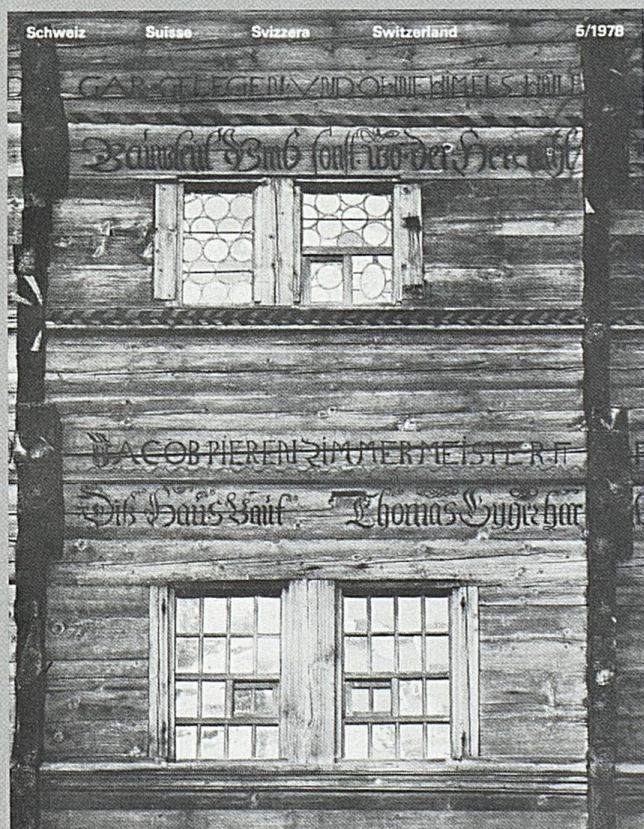 Schweiz Suisse Svizzera Switzerland 5/1978
GAR GELEGEN VND OHNE HIMELS
sonst wo der Herr
IACOB PIEREN ZIMMERMEISTER
Dis Haus Thomas Gyger har